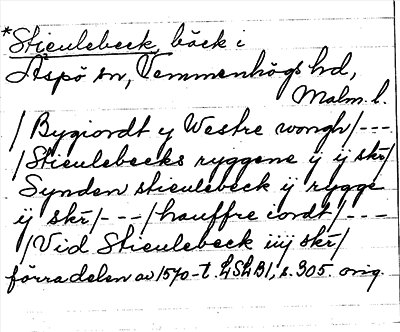 *Stieulebeck, bäck i
Äspö sn, Vemmenhögs hd,
Malm. l.
/Bygiordt y Westre wongh/---
/Stieulebecks ryggene y ij skr̄/
Synden stieulebeck ij rygge
ij skr̄/---/hauffre iordt/---
/Vid Stieulebeck iiij skr̄/
förra delen av 1570-t. LSLB1, s. 305. orig.